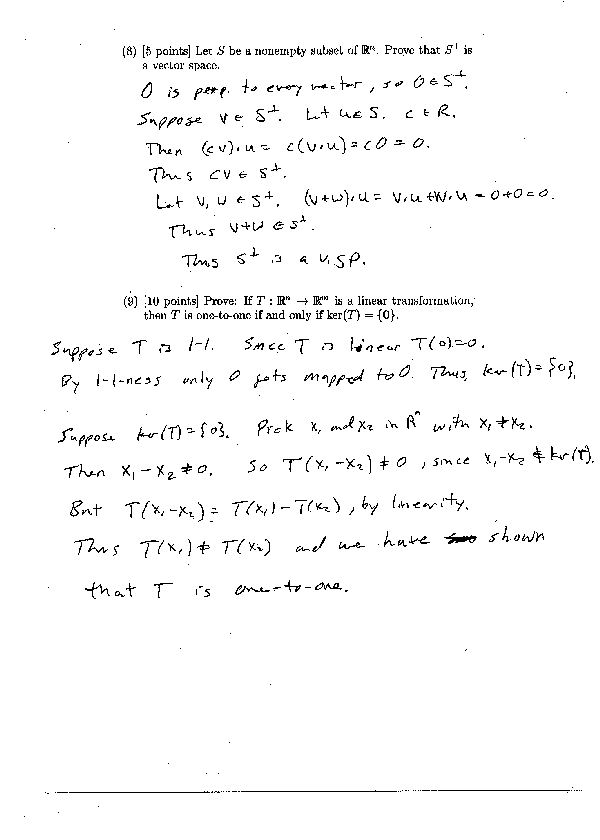 (8) [5 points] Let S be a nonempty subset of ℝⁿ. Prove that S⊥ is
a vector space.
0 is perp. to every vector, so 0 ∈ S⊥.
Suppose v ∈ S⊥. Let u ∈ S. c ∈ R.
Then (cv)·u = c(v·u) = c0 = 0.
Thus cv ∈ S⊥.
Let v, w ∈ S⊥. (v+w)·u = v·u+w·u = 0+0=0.
Thus v+w ∈ S⊥.
Thus S⊥ is a v. sp.
(9) [10 points] Prove: If T : ℝⁿ → ℝᵐ is a linear transformation,
then T is one-to-one if and only if ker(T) = {0}.
Suppose T is 1-1. Since T is linear T(0)=0.
By 1-1-ness only 0 gets mapped to 0. Thus, ker(T)={0}.
Suppose ker(T)={0}. Pick x₁ and x₂ in Rⁿ with x₁≠x₂.
Then x₁-x₂≠0. So T(x₁-x₂)≠0, since x₁-x₂ ∉ ker(T).
But T(x₁-x₂) = T(x₁)-T(x₂), by linearity.
Thus T(x₁) ≠ T(x₂) and we have shown
that T is one-to-one.